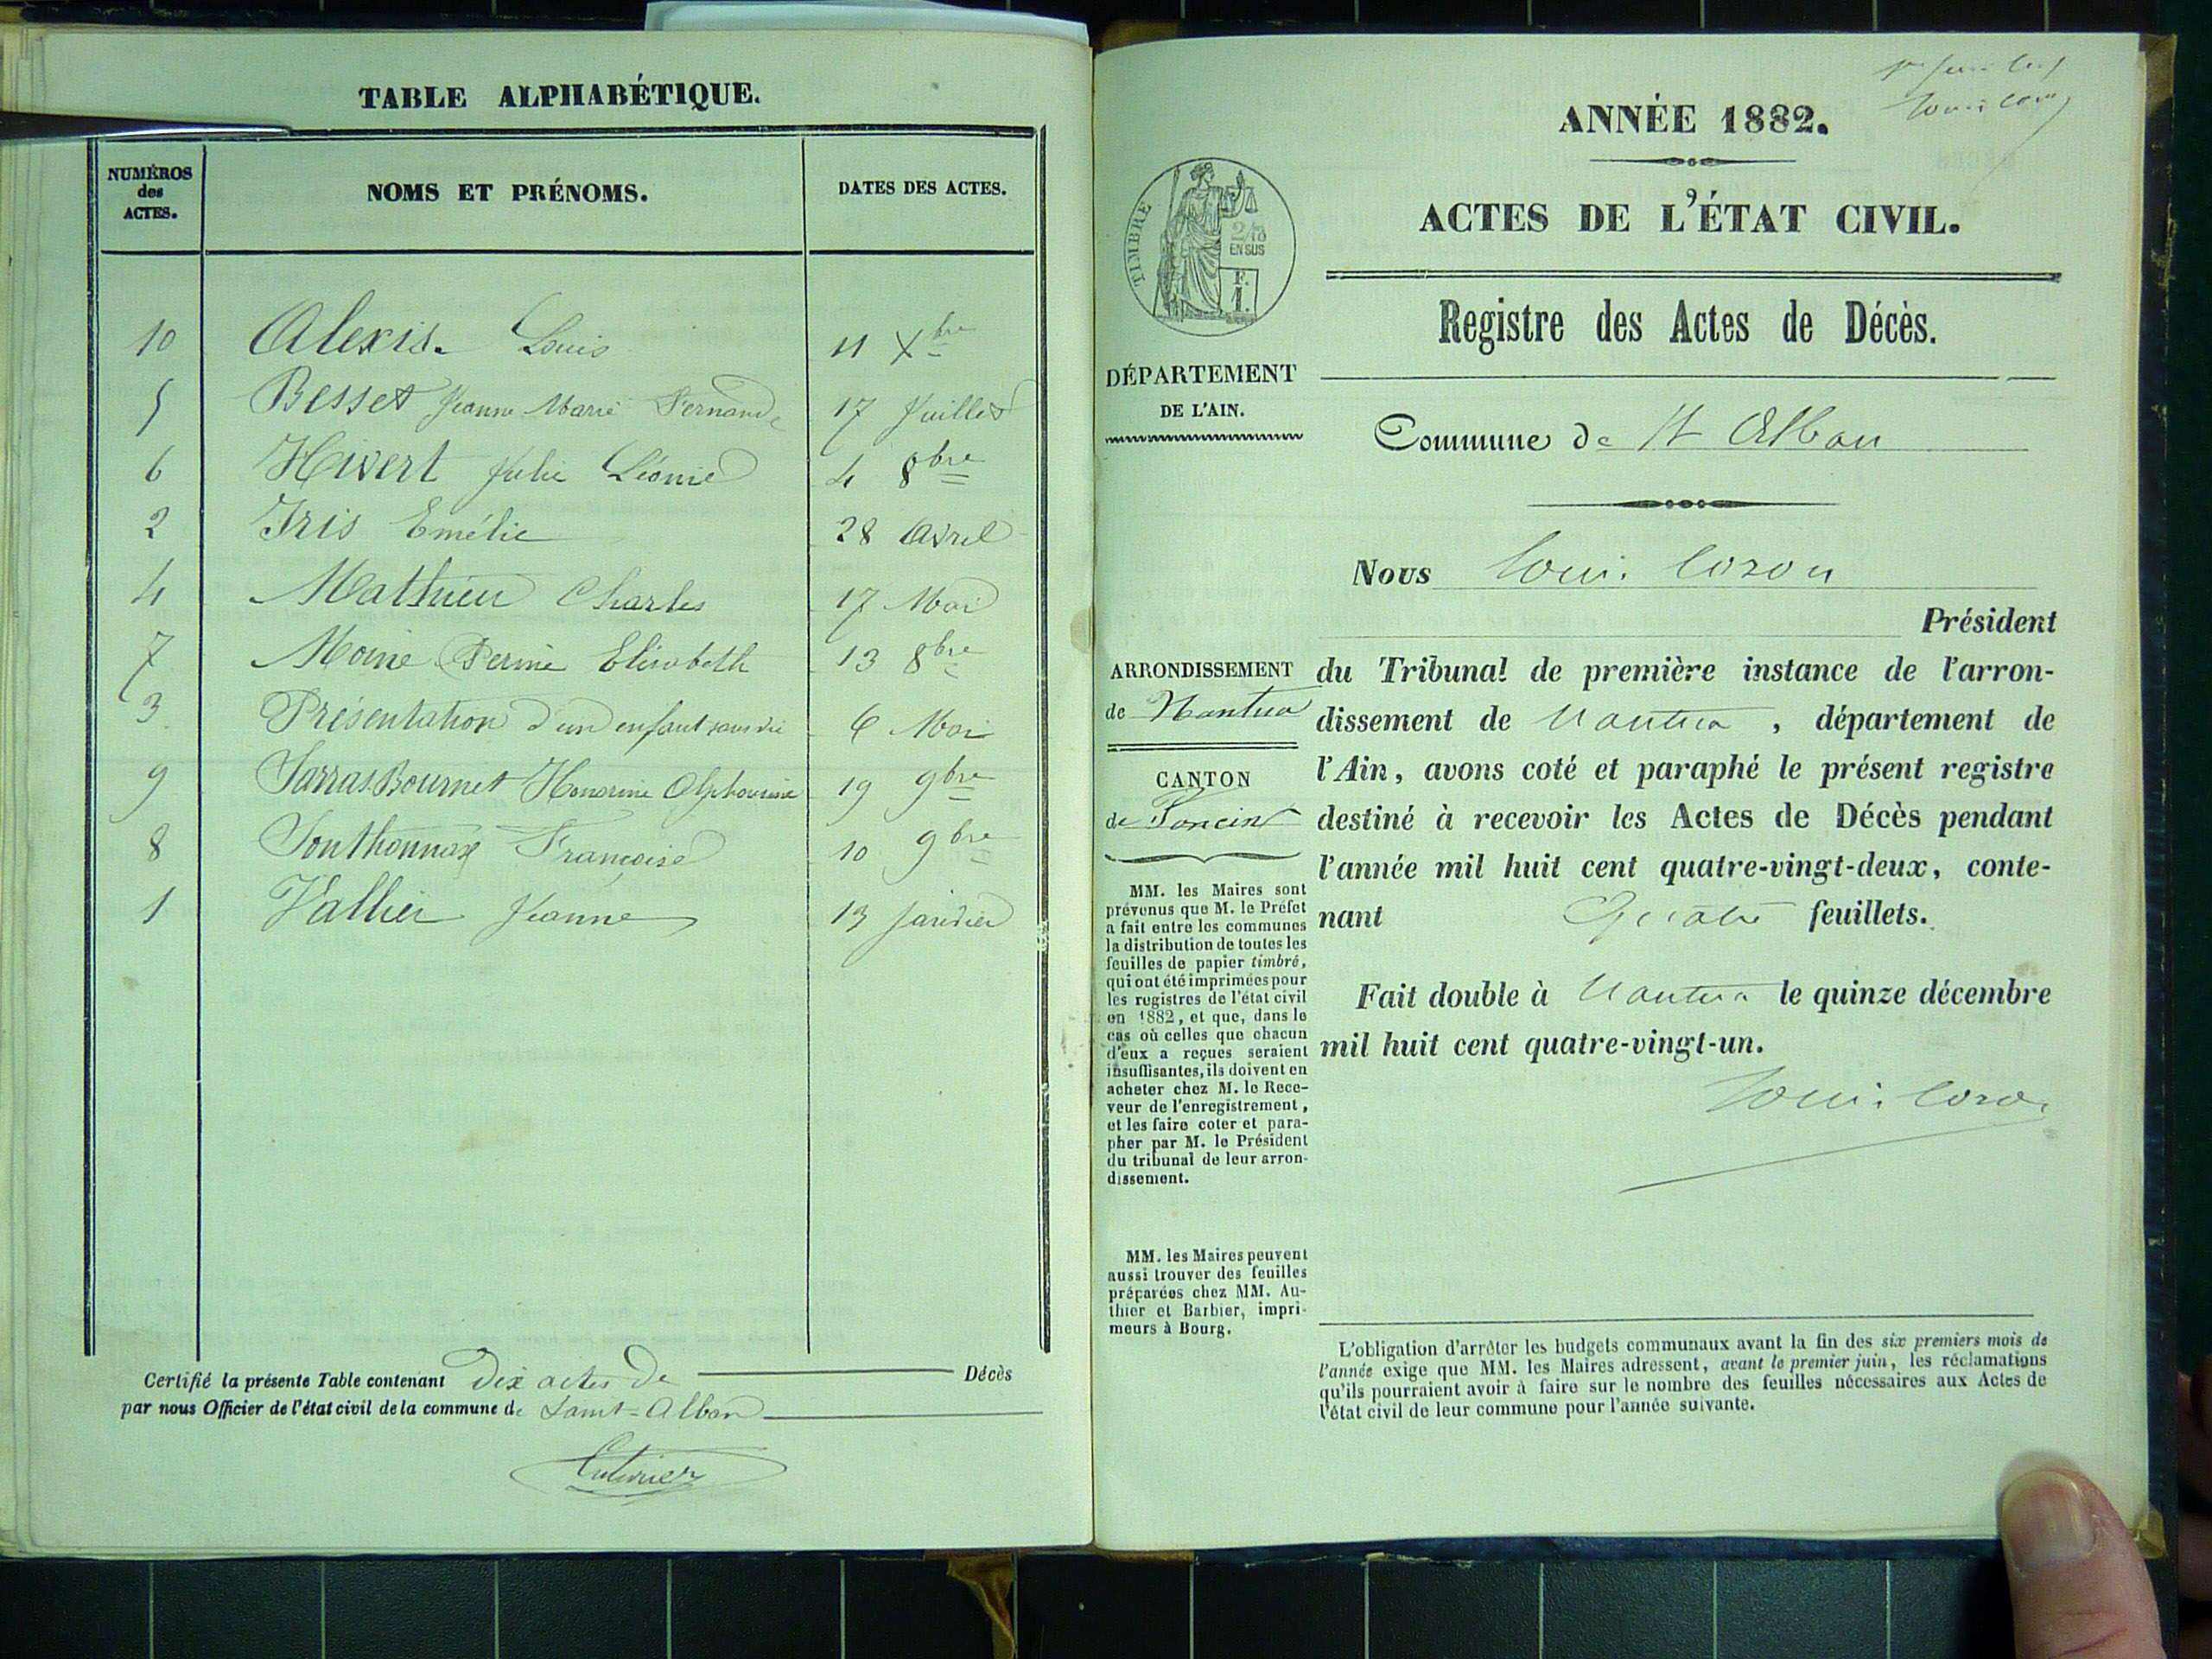 TABLE ALPHABÉTIQUE.
NUMÉROS des ACTES. NOMS ET PRÉNOMS. DATES DES ACTES.
10 Alexis. Louis 11 Xbre
5 Besset Jeanne Marie Fernande 17 Juillet
6 Hivert Julie Léonie 4 8bre
2 Iris Emélie 28 Avril
4 Mathieu Charles 17 Mai
7 Moine Perine Elisabeth 13 8bre
3 Présentation d'un enfant sans vie 6 Mai
9 Sarras Bournet Honorine Alphonsine 19 9bre
8 Sonthonnax Françoise 10 9bre
1 Vallier Jeanne 13 Janvier
Certifié la présente Table contenant Dix actes de Décès
par nous Officier de l'état civil de la commune de Saint-Alban
ANNÉE 1882.
ACTES DE L'ÉTAT CIVIL.
TIMBRE
2/10
EN SUS
F.
1.
Registre des Actes de Décès.
DÉPARTEMENT
DE L'AIN.
Commune de St Alban
Nous Louis Coron
Président
ARRONDISSEMENT
de Nantua
CANTON
de Poncin
du Tribunal de première instance de l'arron-
dissement de Nantua, département de
l'Ain, avons coté et paraphé le présent registre
destiné à recevoir les Actes de Décès pendant
l'année mil huit cent quatre-vingt-deux, conte-
nant Quatre feuillets.
Fait double à Nantua le quinze décembre
mil huit cent quatre-vingt-un.
Louis Coron
MM. les Maires sont
prévenus que M. le Préfet
a fait entre les communes
la distribution de toutes les
feuilles de papier timbré,
qui ont été imprimées pour
les registres de l'état civil
en 1882, et que, dans le
cas où celles que chacun
d'eux a reçues seraient
insuffisantes, ils doivent en
acheter chez M. le Rece-
veur de l'enregistrement,
et les faire coter et para-
pher par M. le Président
du tribunal de leur arron-
dissement.
MM. les Maires peuvent
aussi trouver des feuilles
préparées chez MM. Au-
thier et Barbier, impri-
meurs à Bourg.
L'obligation d'arrêter les budgets communaux avant la fin des six premiers mois de
l'année exige que MM. les Maires adressent, avant le premier juin, les réclamations
qu'ils pourraient avoir à faire sur le nombre des feuilles nécessaires aux Actes de
l'état civil de leur commune pour l'année suivante.